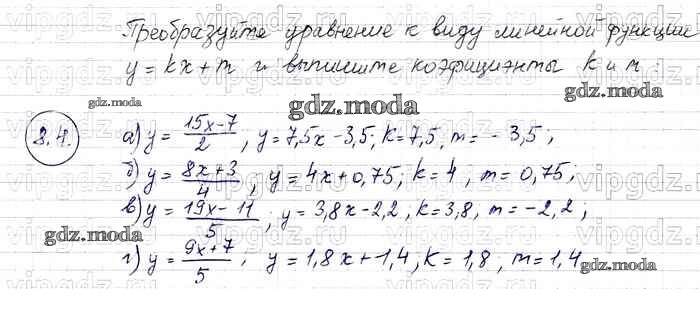 Преобразуйте уравнение к виду линейной функции
y = kx + m и выпишите коэфициенты k и m :
gdz.moda gdz.moda
8.4. а) y = (15x-7)/2, y = 7,5x - 3,5; k = 7,5, m = - 3,5;
б) y = (8x+3)/4, y = 4x + 0,75; k = 4, m = 0,75;
в) y = (19x-11)/5, y = 3,8x - 2,2, k = 3,8, m = -2,2;
gdz.moda
г) y = (9x+7)/5, y = 1,8x + 1,4, k = 1,8, m = 1,4
gdz.moda